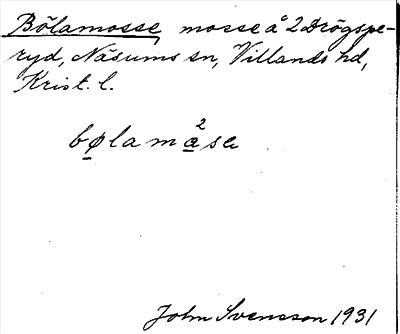 Bölamosse, mosse å 2 Drögspe-
ryd, Näsums sn, Villands hd,
Krist. l.
bølama²sa
John Svensson 1931